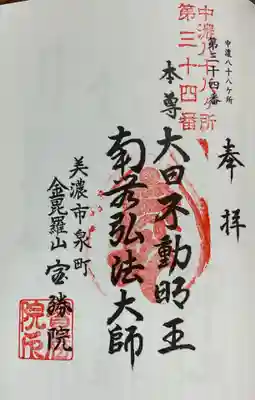 奉拝
中濃八十八ヶ所
第三十四番
中濃八十八ヶ所
第三十四番
本尊
大日不動明王
南無弘法大師
美濃市泉町
金毘羅山宝勝院